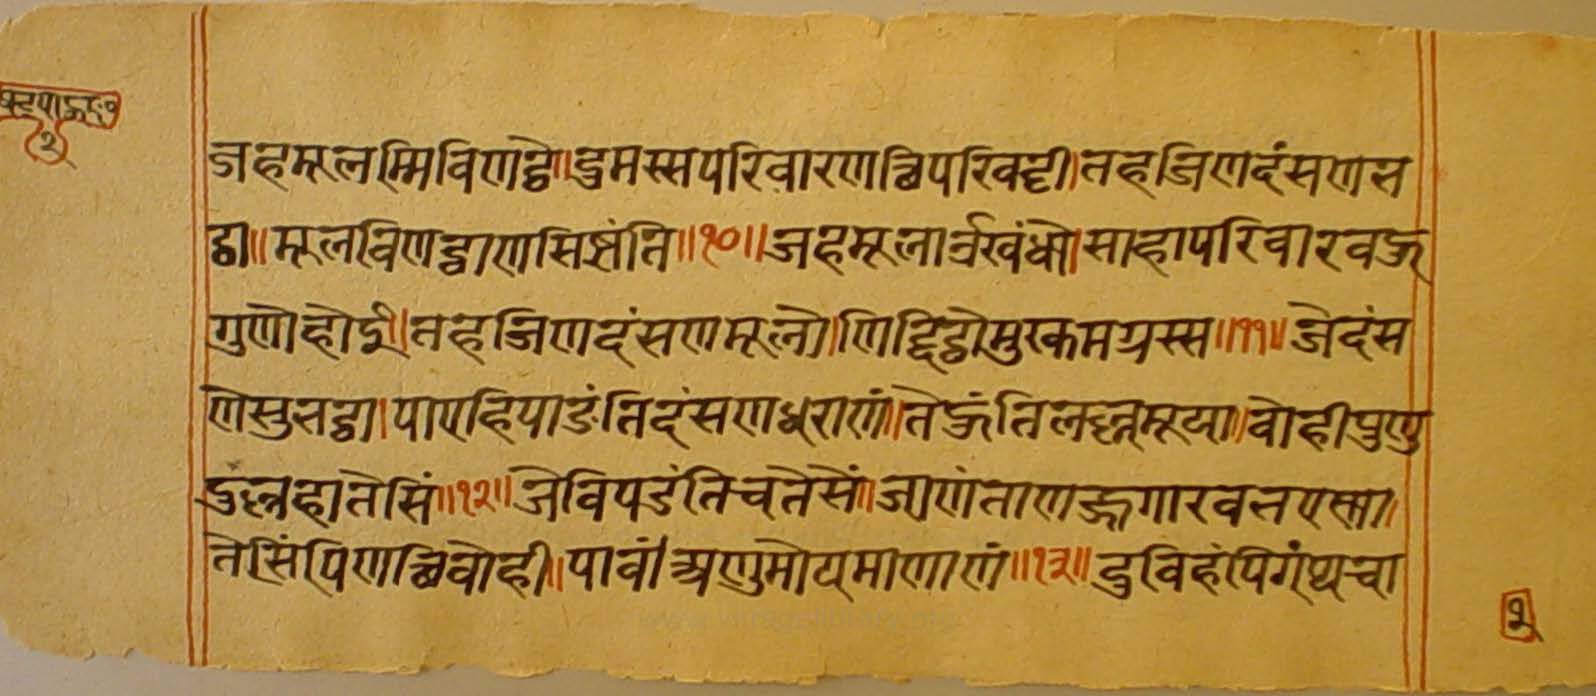 षट्पाऊड१
२
जहमूलम्मिविणट्ठे॥डुमस्सपरिवारणच्चिपरिवट्टी।तहजिणदंसणभ
ट्ठा॥मूलविणट्ठाणसिझंति॥१०॥जहमूलाउखंधो।साहापरिवारवऊ
गुणोहोई।तहजिणदंसणमूलो।णिद्दिट्ठोमुरकमग्गस्स॥११॥जेदंस
णेसुभट्ठा।पाएहिपाडंतिदंसणधराणं।तेऊंतिलल्लमूया।वोहीपुणु
डुल्लहातेसिं॥१२॥जेविपडंतिचतेसें॥जाणंताणऊगारवभएणा।
तेसिंपिणच्चिवोही॥पावं।अणुमोयमाणाणं॥१३॥डुविहंपिगंथचा
२